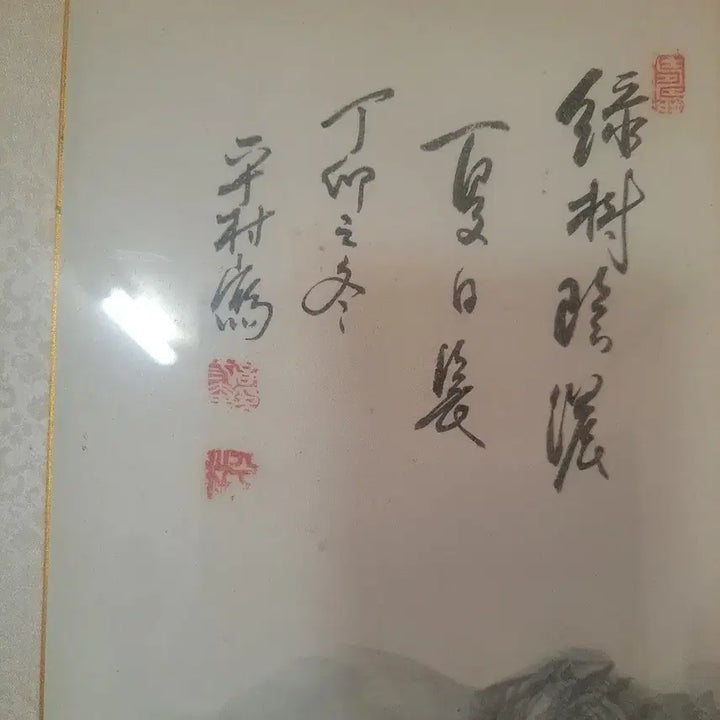 綠樹陰濃
夏日長
丁卯之冬
平村寫